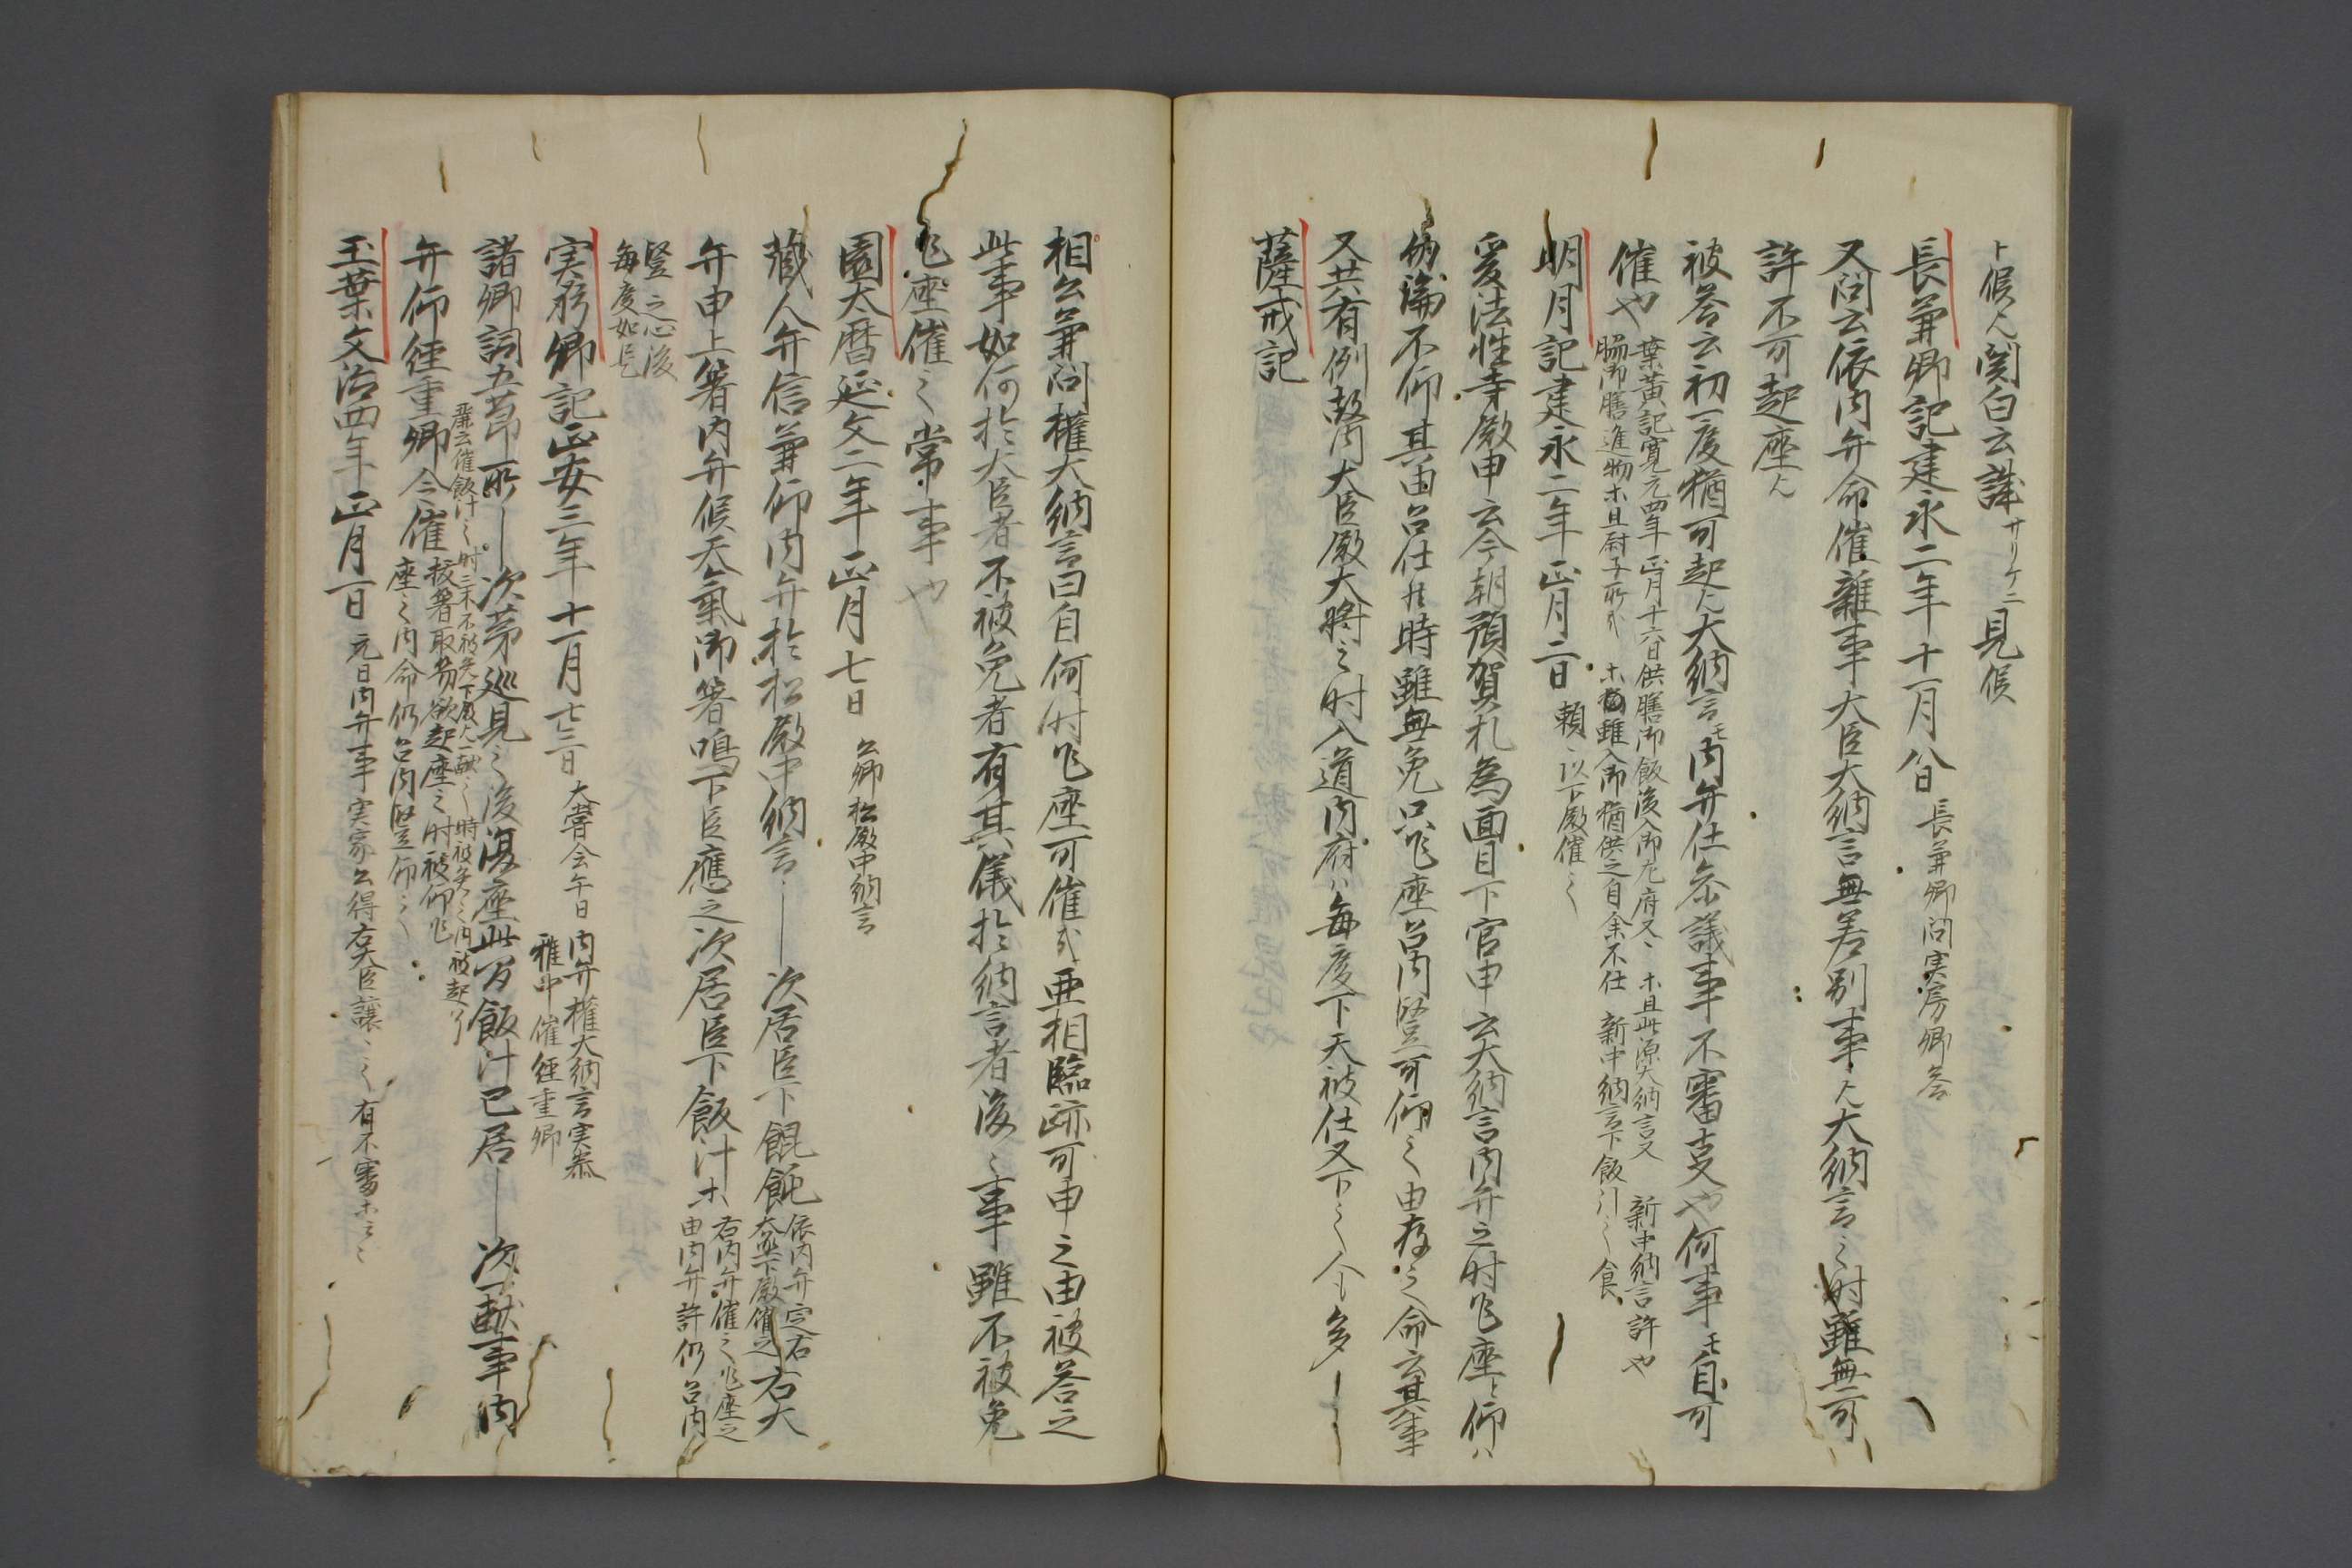 ト候人関白云諾サリケニ見候
長兼卿記建永二年十一月八日 長兼卿問実房卿答
又問云依内弁命催雑事大臣大納言無差別事人大納言之時雖無可
許不可起座人
被答云初一度猶可起人大納言モ内弁仕参議事不審支や何事モ自可
催や 葉黄記寛元四年正月十六日供膳御飯後入御左府又
腸御膳進物ホ且 ホ猶雖入御猶供之自余不仕 新中納言下飯引之食
新中納言許や
明月記建永二年正月二日 頼以下殿催之
爰法性寺殿申云今朝預賀札為面目下官申云大納言内弁之時乍座ト仰ハ
勿論不仰其由召仕 時雖無免只乍座召内竪可仰之由存之命云其事
又共有例故内大臣殿大将之時入道内府ハ毎度下天被仕又下之人も多
薩戒記
相公兼問権大納言曰自何時乍座可催哉亜相臨跡可申之由被答之
此事如何於大臣者不被免者有其儀於納言者後之事雖不被免
乍座催之常事や
園太暦延文二年正月七日 公卿松殿中納言
蔵人弁信兼仰内弁於松殿中納言 次居臣下餛飩 依内弁定右
大 下殿催之 右大
弁申上箸内弁候天気御箸鳴下臣應之次居臣下飯汁ホ 右内弁催之乍座之
由内弁許仍召内
竪之心後
毎度如此
実躬卿記正安三年十一月廿三日 大嘗会午日 内弁権大納言実泰
雅中催経重卿
諸卿詞五節所 次第巡見之後復座此間飯汁已居 次一献事内
弁仰経重卿令催 抜箸取笏欲起座之時被仰乍
座之内命仍召内竪仰之
玉葉文治四年正月一日 元日内弁事実家公得右大臣譲 有不審